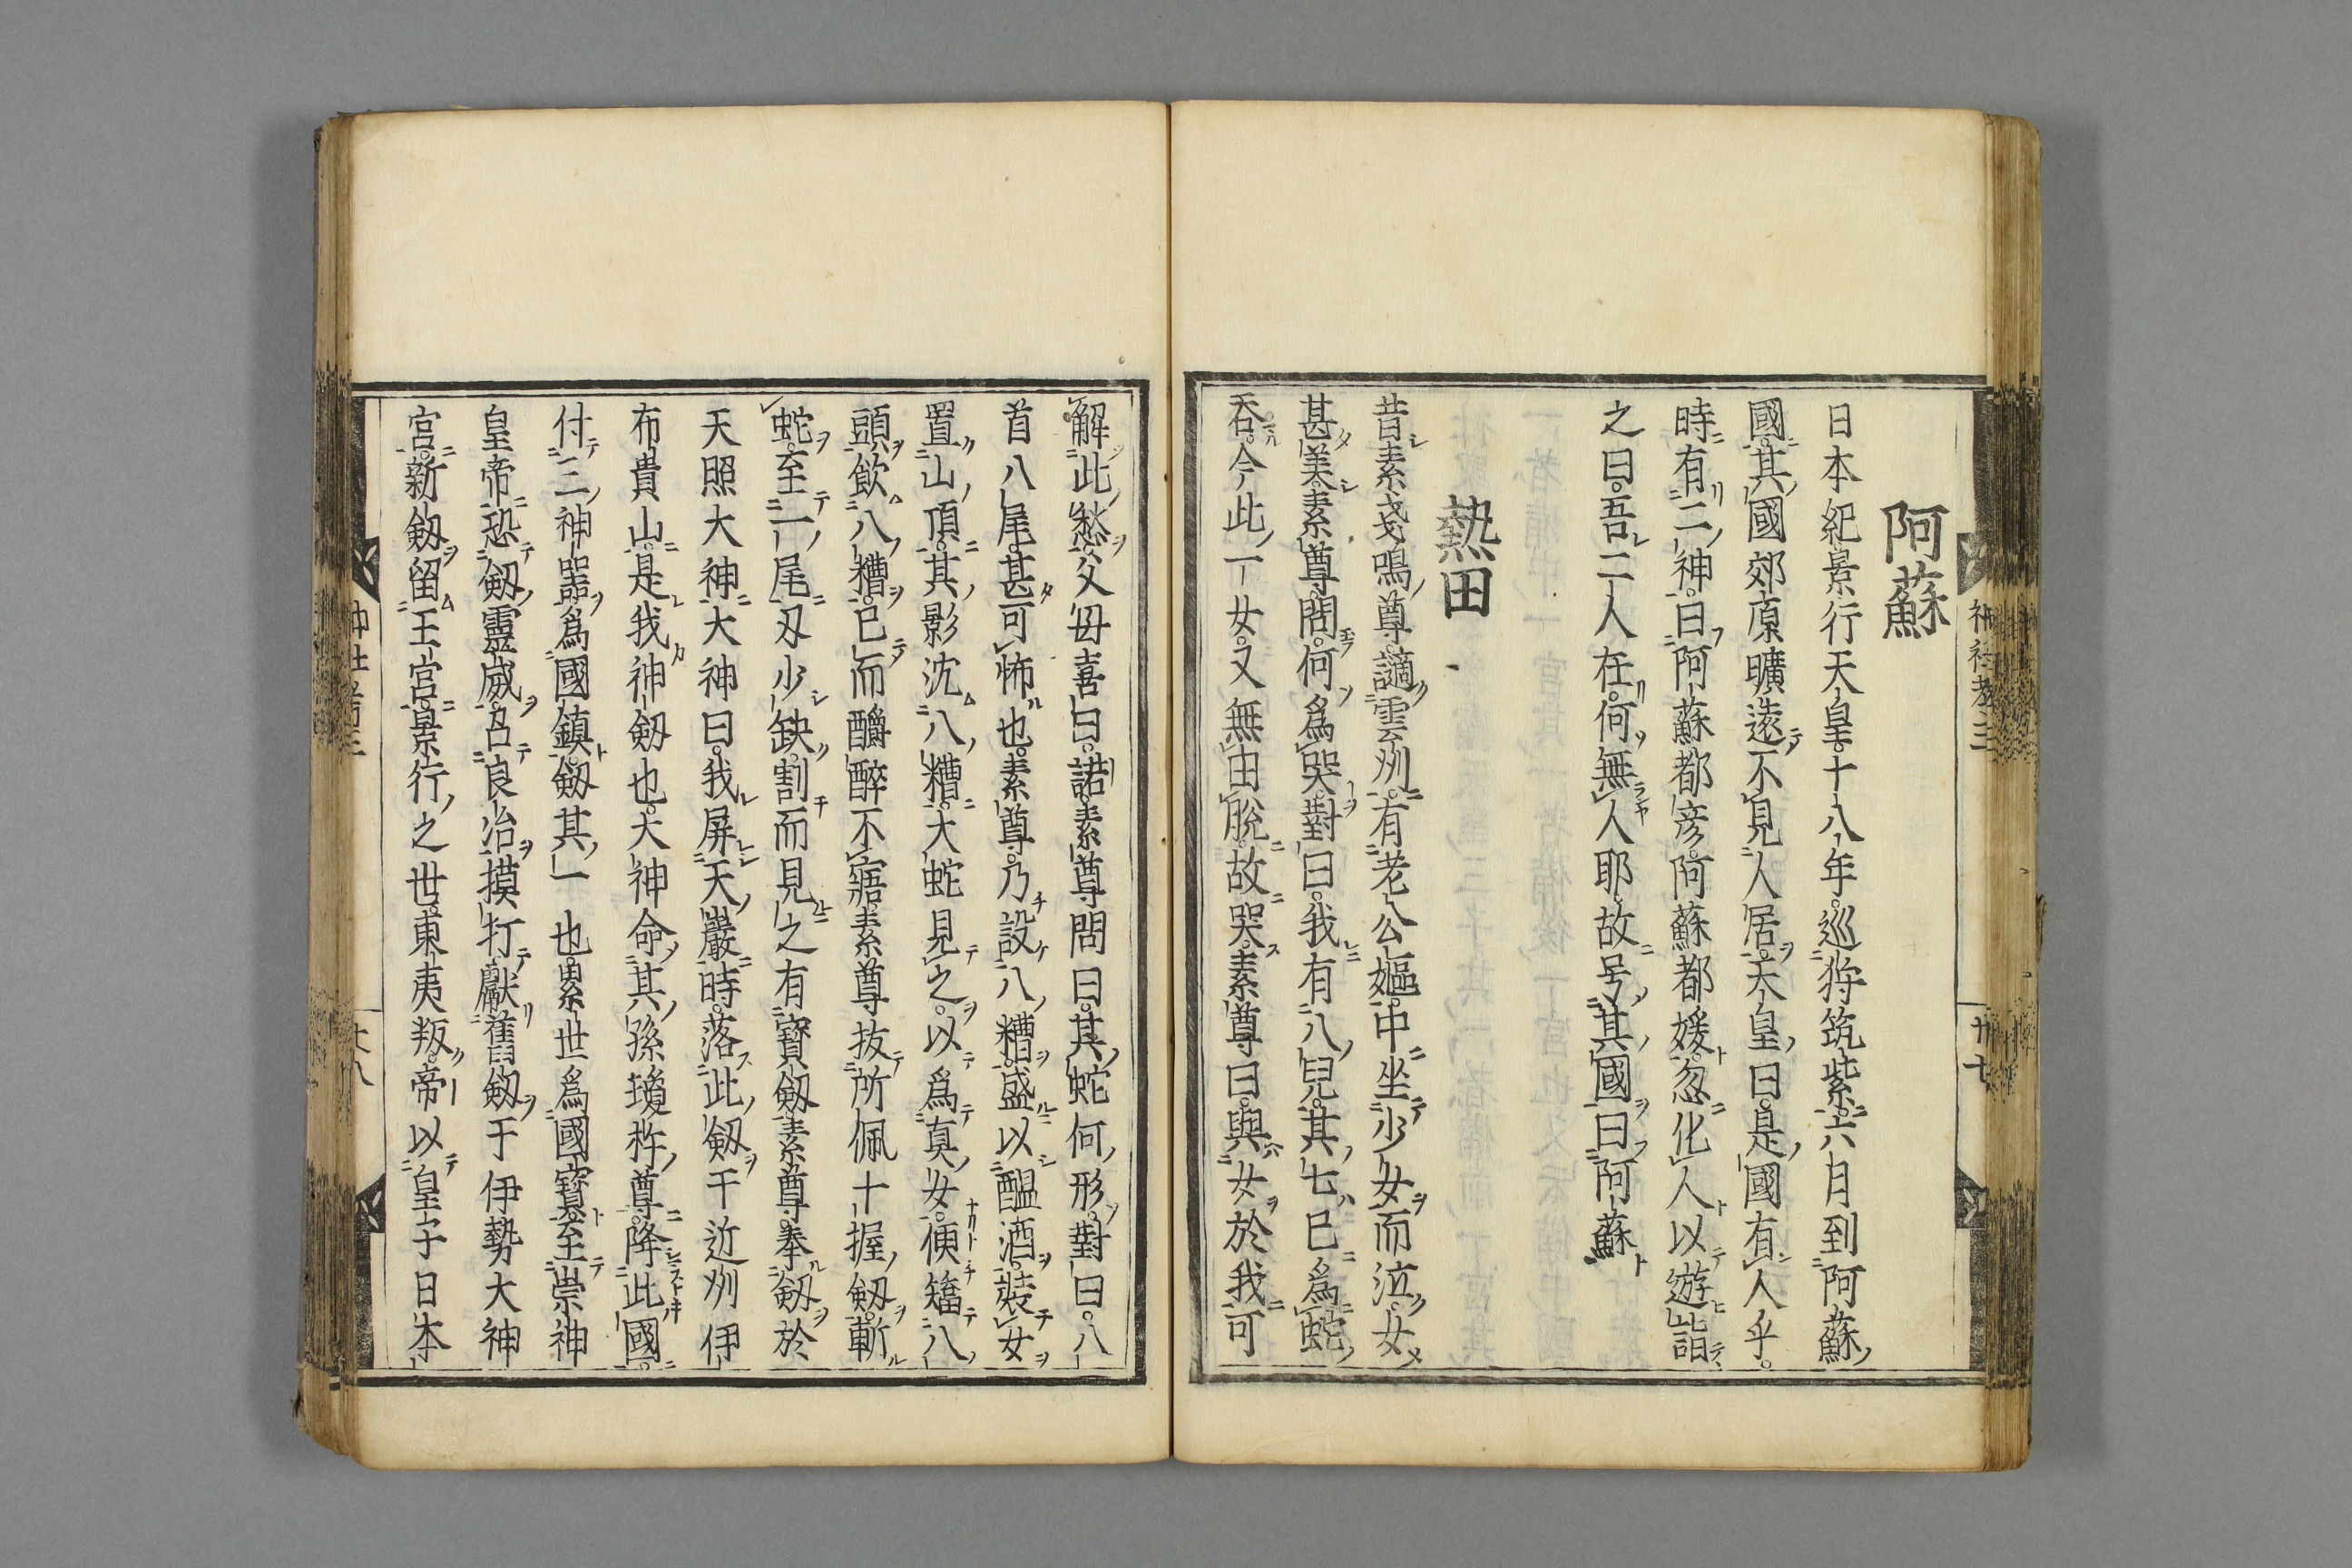 阿蘇
日本紀景行天皇十八年。巡狩筑紫六月到阿蘇
國其國郊原曠遠不見人居。天皇曰。是國有人乎。
時有二神。曰阿蘇都彦。阿蘇都媛。忽化人以遊詣
之曰。吾二人在。何無人耶。故号其國曰阿蘇
熱田
昔素戔嗚尊。謫雲州。有老公嫗。中坐少女而泣。女
甚美。素尊問。何爲哭。對曰。我有八兒。其七已爲蛇
吞。今此一女。又無由脫。故哭。素尊曰。與女於我可
解此愁。父母喜曰。諾。素尊問曰。其蛇何形。對曰。八
首八尾。甚可怖也。素尊。乃設八糟。盛以醞酒。裝女
置山頂。其影沈八糟。大蛇見之。以爲真女。便矯八
頭飲八糟。已而酣醉不寤。素尊抜所佩十握劔。斬
蛇。至一尾刃少缺。割而見之有寶劔。素尊。奉劔於
天照大神。大神曰。我屏天巖時。落此劔于近州伊
布貴山。是我神劔也。大神命其孫瓊杵尊。降此國。
付三神器。爲國鎮。劔其一也。累世爲國寶。至崇神
皇帝。恐劔靈威。召良冶摸打。獻舊劔于伊勢大神
宮。新劔留王宮。景行之世。東夷叛。帝以皇子日本
神社考三
廿七